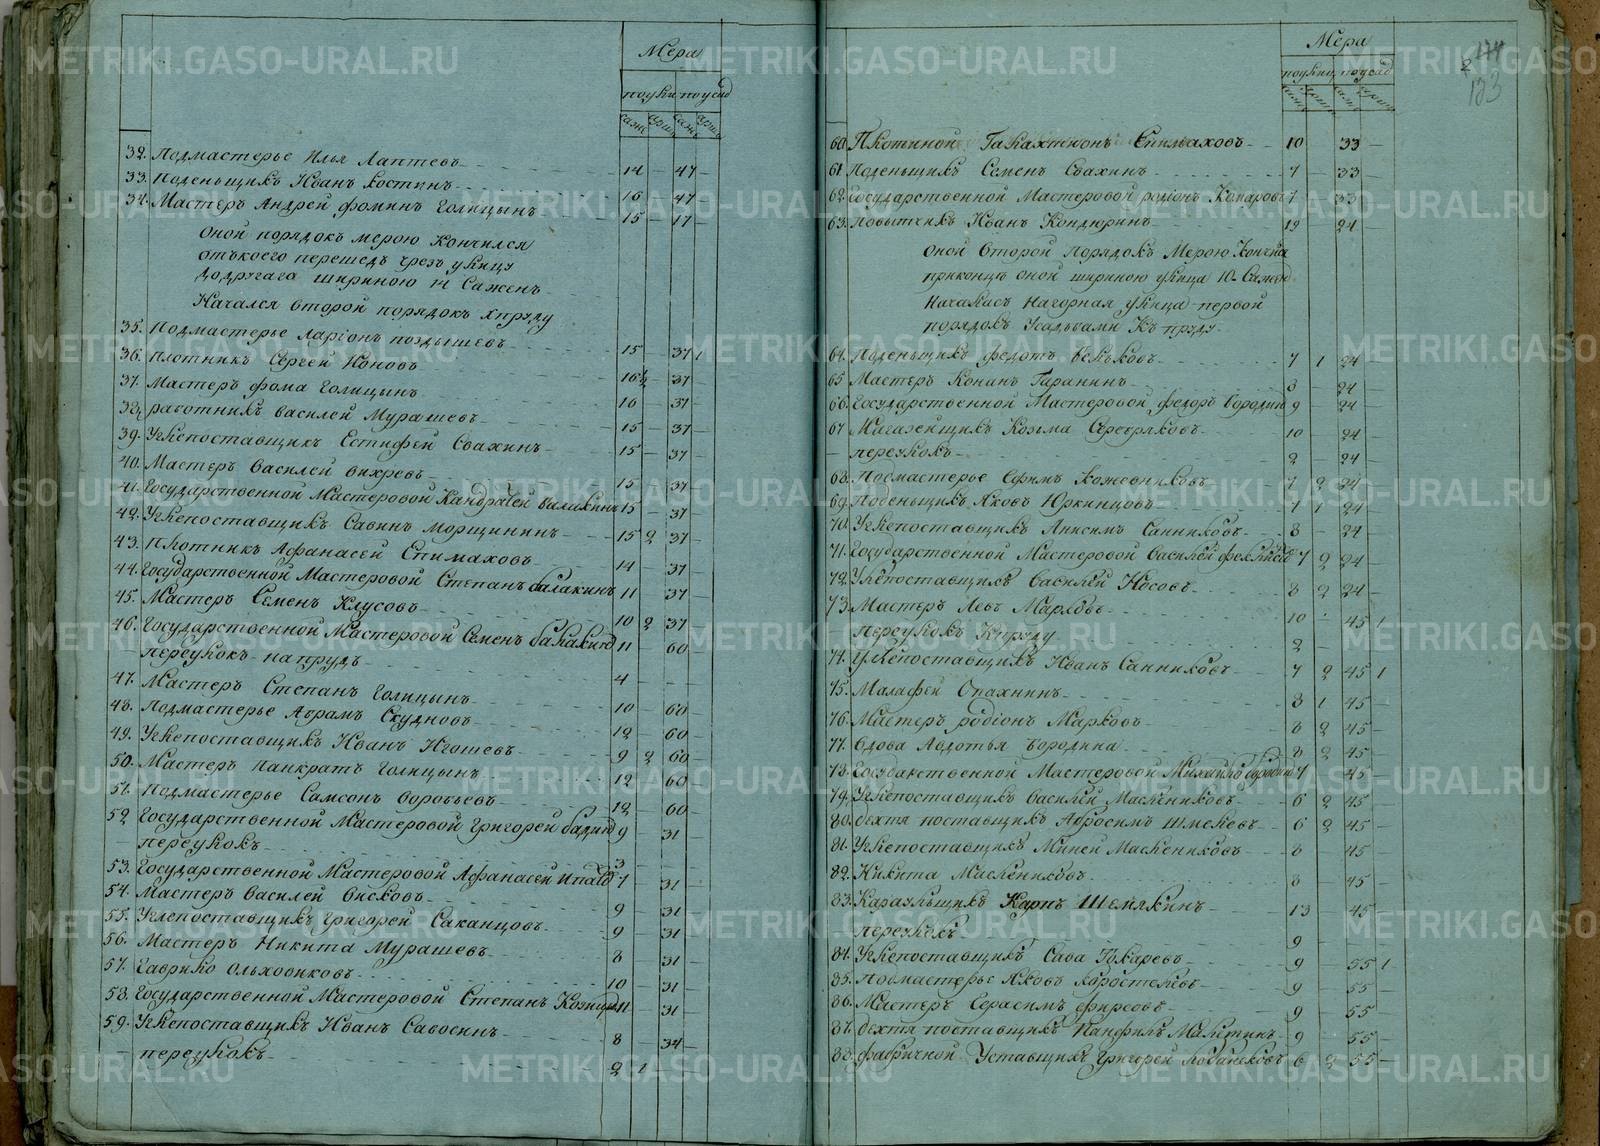 Мера
поулиц поусад
саж арш саж арш
32. Подмастерье Илья Лаптевъ 14 — 47 —
33. Поденьщикъ Иванъ Костинъ 16 — 47 —
34. Мастеръ Андрей Фоминъ Голицынъ 15 — 17 —
оной порядокъ мерою Кончился
отъкоего перешедъ чрезъ улицу
додругага шириною 14 Саженъ
Начался второй порядокъ Кпруду
35. Подмастерье Ларіонъ поздышевъ 15 — 37 1
36. плотникъ Сергей Коновъ 16½ — 37 —
37. Мастеръ фома Голицынъ 16 — 37 —
38. работникъ василей Мурашевъ 15 — 37 —
39. Углепоставщикъ Естифей Свахинъ 15 — 37 —
40. Мастеръ Василей вихревъ 15 — 37 —
41. Государственной Мастеровой Кандратей балакинъ 15 — 37
42. Углепоставщикъ Савинъ морщининъ 15 2 37 —
43. Плотникъ Афанасей Епимаховъ 14 — 37 —
44. Государственной Мастеровой Степанъ балакинъ 11 37 —
45. Мастеръ Семенъ Клусовъ 10 2 37
46. Государственной Мастеровой Семенъ балакинъ 11 60 —
переулокъ напрудъ 4 — — —
47. Мастеръ Степанъ Голицынъ 10 — 60 —
48. Подмастерье Аврамъ Скудновъ 12 60 —
49. Углепоставщикъ Иванъ Игошевъ 9 2 60
50. Мастеръ панкратъ Голицынъ 12 60
51. Подмастерье Самсонъ воробьевъ 12 60
52. Государственной Мастеровой Григорей 9 31 —
переулокъ 3 —
53. Государственной Мастеровой Афанасей Ипатовъ 7 — 31 —
54. Мастеръ василей висковъ 9 — 31
55. Углепоставщикъ Григорей Саканцовъ 9 — 31
56. Мастеръ Никита Мурашевъ 8 31
57. Гаврило Ольховиковъ 10 — 31 —
58. Государственной Мастеровой Степанъ 11 — 31 —
59. Углепоставщикъ Иванъ Савосинъ 8 34 —
переулокъ 2 1 — —
174
133
Мера
поулиц поусад
саж арш саж арш
60. Плотиной Галахтионъ Епимаховъ 10 33 —
61. Поденьщикъ Семенъ Свахинъ 7 — 33 —
62. Государственной Мастеровой родіонъ Комаровъ 7 — 33
63. повытчикъ Иванъ Кондюринъ 12 24 —
оной второй порядокъ Мерою Кончился
приконце оной шириною улица 10 Сажен
Началась Нагорная улица первой
порядокъ Усадьбами Къ пруду
64. Поденьщикъ федотъ 7 1 24
65. Мастеръ Конанъ Гаранинъ 8 — 24 —
66. Государственной Мастеровой федоръ бородинъ 9 — 24 —
67. Магазейщикъ Козьма Серебряковъ 10 — 24 —
переулокъ 2 — 24
68. Подмастерье Ефимъ Кожевниковъ 7 2 24 —
69. Поденьщикъ Яковъ Юркинцовъ 7 1 24
70. Углепоставщикъ Анисимъ Санниковъ 8 — 24
71. Государственной Мастеровой василей 7 2 24
72. Углепоставщикъ василей Носовъ 8 2 24 —
73. Мастеръ Левъ Марковъ 10 — 45 1
переулокъ Кпруду 2 —
74. Углепоставщикъ Иванъ Санниковъ 7 2 45 1
75. Малафей Опахнинъ 8 1 45 —
76. Мастеръ родіонъ Марковъ 8 2 45 —
77. вдова Авдотья бородина 8 2 45
78. Государственной Мастеровой Михайло бородин 7 — 45
79. Углепоставщикъ василей Маслениковъ 6 2 45
80. дехтя поставщикъ Абросимъ Шмелевъ 6 2 45
81. Углепоставщикъ Миней Маслениковъ 8 45 —
82. Никита Маслениковъ 8 — 45 —
83. Караульщикъ Карпъ Шемякинъ 13 — 45
переулокъ 9 —
84. Углепоставщикъ Сава Токаревъ 9 55 1
85. Подмастерье Яковъ Коростелевъ 9 — 55 —
86. Мастеръ Герасимъ фирсовъ 9 — 55
87. дехтя поставщикъ Панфилъ 9 — 55 —
88. фабричной Уставщикъ григорей 6 2 55 —
METRIKI.GASO-URAL.RU